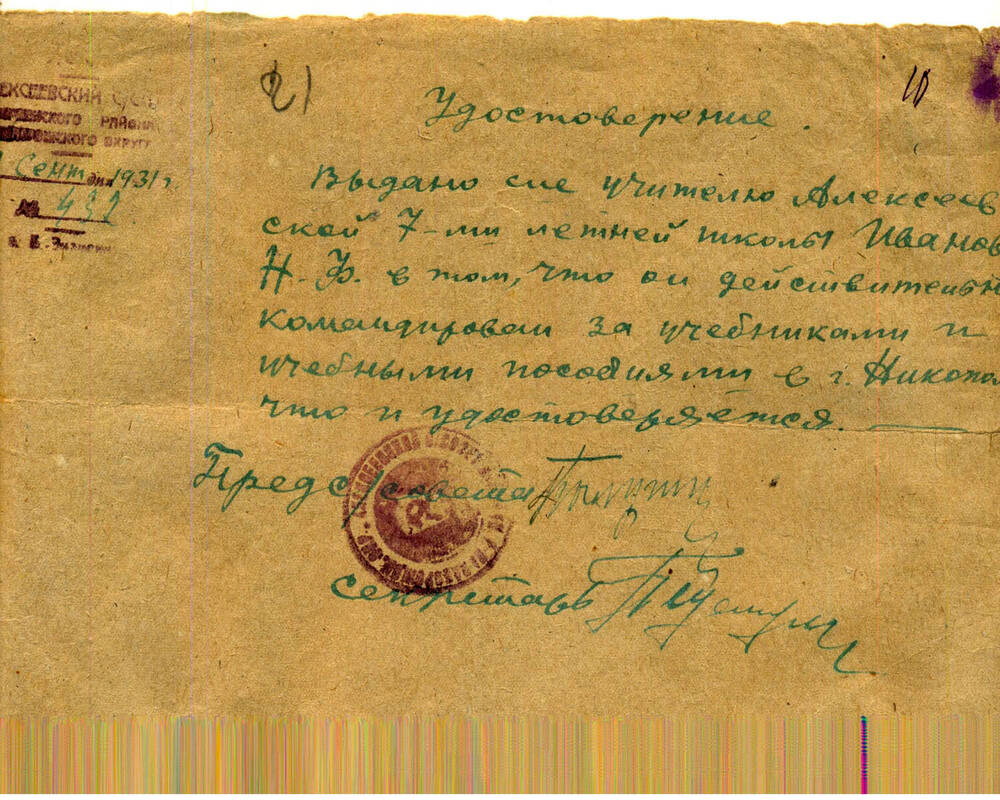 21
10
ЕКСЕЕВСКИЙ С/С
РАЙОНА
ОКРУГ
Сент 1931 г.
№ 432
Удостоверение.
Выдано сие учителю Алексеев
ской 7-ми летней школы Иванов
Н. Ф. в том, что он действительн
командирован за учебниками и
учебными пособиями в г. Никопол
что и удостоверяется.
Предс/совета
секретарь